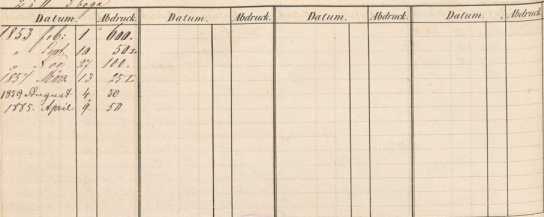 Datum. Abdruck. Datum. Abdruck. Datum. Abdruck. Datum. Abdruck.
1853 Feb: 1 600.
" Sept. 19 50
" " 27 100.
1857 März 13 25
1859 August 4 30
1885. April 9 50